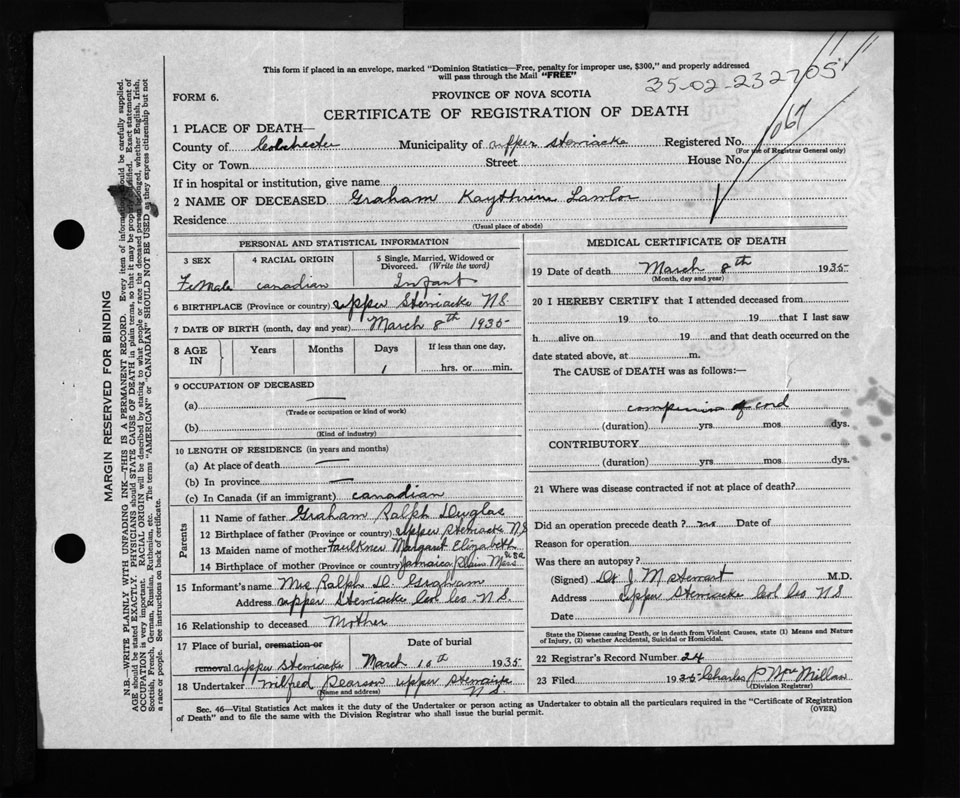 This form if placed in an envelope, marked "Dominion Statistics—Free, penalty for improper use, $300," and properly addressed
will pass through the Mail "FREE"
35-02-232705
FORM 6.
PROVINCE OF NOVA SCOTIA
CERTIFICATE OF REGISTRATION OF DEATH
1067
1 PLACE OF DEATH—
County of Colchester Municipality of upper Stewiacke Registered No.
(For use of Registrar General only)
City or Town Street House No.
If in hospital or institution, give name
2 NAME OF DECEASED Graham Kaythrine Lawlor
Residence
(Usual place of abode)
PERSONAL AND STATISTICAL INFORMATION
3 SEX 4 RACIAL ORIGIN 5 Single, Married, Widowed or Divorced. (Write the word)
Female canadian Infant
6 BIRTHPLACE (Province or country) upper Stewiacke N.S.
7 DATE OF BIRTH (month, day and year) March 8th 1935
8 AGE IN Years Months Days If less than one day,
1 hrs. or min.
9 OCCUPATION OF DECEASED
(a) —
(Trade or occupation or kind of work)
(b)
(Kind of industry)
10 LENGTH OF RESIDENCE (in years and months)
(a) At place of death —
(b) In province —
(c) In Canada (if an immigrant) canadian
Parents
11 Name of father Graham Ralph Duglas
12 Birthplace of father (Province or country) upper Stewiacke N.S
13 Maiden name of mother Faulkner Margaret Elizabeth
14 Birthplace of mother (Province or country) Jamaica Plains Mass USA
15 Informant's name Mrs Ralph D. Graham
Address upper Stewiacke Col Co. N.S.
16 Relationship to deceased Mother
17 Place of burial, cremation or removal Date of burial
upper Stewiacke March 10th 1935
18 Undertaker Wilfred Pearson upper Stewiacke
N.S.
(Name and address)
MEDICAL CERTIFICATE OF DEATH
19 Date of death March 8th 1935
(Month, day and year)
20 I HEREBY CERTIFY that I attended deceased from
19 to 19 that I last saw
h alive on 19 and that death occurred on the
date stated above, at m.
The CAUSE of DEATH was as follows:—
of cord
(duration) yrs mos dys.
CONTRIBUTORY
(duration) yrs mos dys.
21 Where was disease contracted if not at place of death?
Did an operation precede death? no Date of
Reason for operation
Was there an autopsy?
(Signed) Dr J. M Stewart M.D.
Address upper Stewiacke Col Co N S
Date
State the Disease causing Death, or in death from Violent Causes, state (1) Means and Nature
of Injury, (2) whether Accidental, Suicidal or Homicidal.
22 Registrar's Record Number 24
23 Filed 1935 Charles P. Millan
(Division Registrar)
Sec. 46—Vital Statistics Act makes it the duty of the Undertaker or person acting as Undertaker to obtain all the particulars required in the "Certificate of Registration
of Death" and to file the same with the Division Registrar who shall issue the burial permit.
(OVER)
MARGIN RESERVED FOR BINDING
N.B.—WRITE PLAINLY WITH UNFADING INK—THIS IS A PERMANENT RECORD. Every item of information should be carefully supplied.
AGE should be stated EXACTLY. PHYSICIANS should STATE CAUSE OF DEATH in plain terms, so that it may be properly classified. Exact statement of
OCCUPATION is very important. RACIAL ORIGIN will be described by stating to what people or race the deceased person belonged, whether English, Irish,
Scottish, French, German, Russian, Ruthenian, etc. The terms "AMERICAN" or "CANADIAN" SHOULD NOT BE USED as they express citizenship but not
a race or people. See instructions on back of certificate.